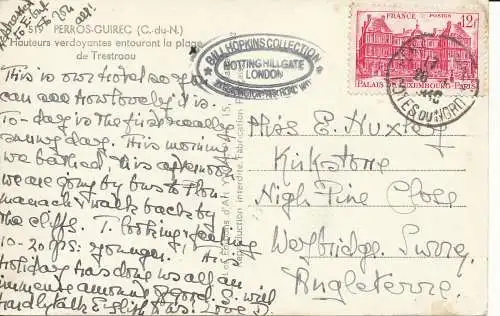 7519 PERROS-GUIREC (C.-du-N.)
Hauteurs verdoyantes entourant la plage
de Trestraou
BILL HOPKINS COLLECTION
NOTTING HILL GATE
LONDON
FRANCE POSTES
12F
PALAIS DU LUXEMBOURG - PARIS
CÔTES DU NORD
Reproduction interdite. Fabrication
This is our Hotel so you
can see how lovely it is
To-day is the first really
sunny day. This morning
we bathed, this afternoon
we are going by bus to Plou-
manach & walk back by
the cliffs. T. looking &
10-20 yrs. younger!
Holiday has done us all an
immense amount of good. S. will
hardly talk English
Love D.
Miss E. Huxley
Kirkstone
High Pine Close
Weybridge. Surrey
Angleterre